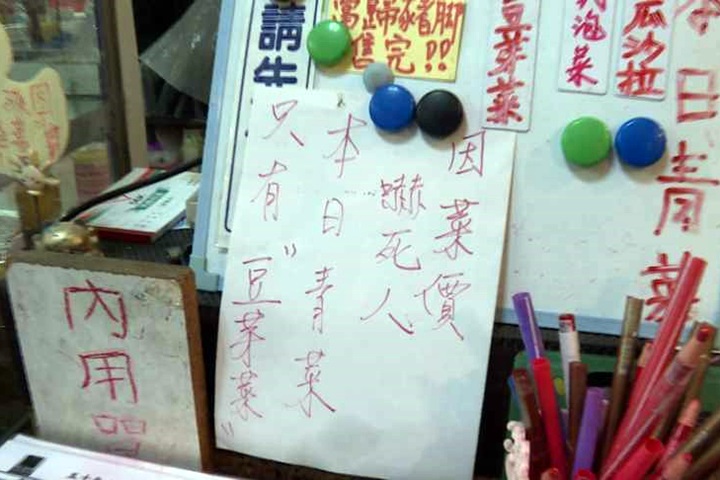 因菜價
嚇死人
本日青菜
只有"豆芽菜"
當歸豬腳
售完!!
豆芽菜
泡菜
瓜沙拉
日青菜
內用
請